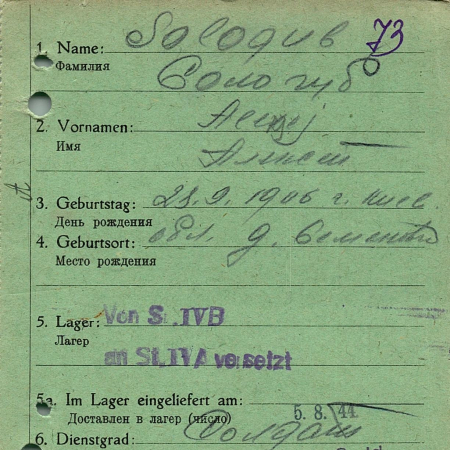 73
1. Name: Sologub
Фамилия Сологуб
2. Vornamen: Alexej
Имя Алексей
3. Geburtstag: 23.9.1906 г. Киев
День рождения
4. Geburtsort: обл. д.
Место рождения
5. Lager: Von St.IVB
Лагер
an St.IVA versetzt
5a. Im Lager eingeliefert am:
Доставлен в лагер (число) 5.8.44
6. Dienstgrad: Солдат